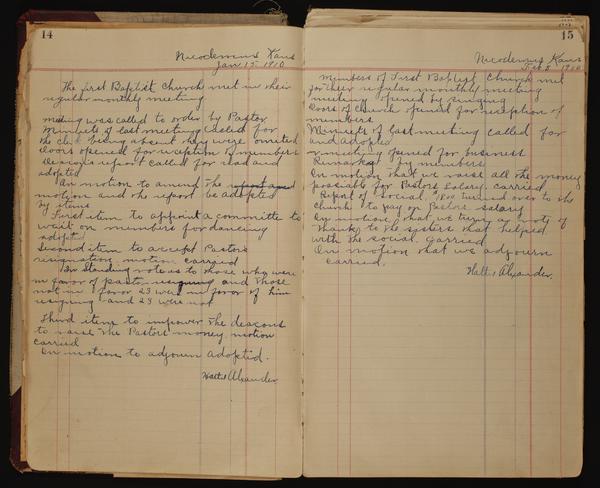 14
Nicodemus Kans
Jan 15 1910
The First Baptist Church met in their
regular monthly meeting
meeting was called to order by Pastor
Minuets of last meeting called for
the clerk being absent they were omited
Doors opened for reception of members
Deacons report called for read and
adopted
An motion to amend the report and
motion and the report be adopted
by items
First item to appoint a committe to
wait on members for dancing
adopted
Second item to accept Pastors
resignation motion carried
In Standing vote as to those who were
in favor of pastor resigning and those
not in favor 23 were in favor of him
resigning and 23 were not
Third item to impower the deacons
to raise the Pastors money motion
carried
On motion to adjourn adopted.
Hattie Alexander
15
Nicodemus Kans
Feb 1910
Members of First Baptist Church met
for their regular monthly meeting
meeting opened by singing
Doors of Church opened for reception of
members
Minuets of last meeting called for
and adopted
meeting opened for business
Remarks by members
On motion that we raise all the money
possible for Pastors Salary. carried
Report of Social turned over to the
Church to pay on Pastors salary
On motion that we turn a vote of
thanks to the sisters that helped
with the social. carried
On motion that we adjourn
carried.
Hattie Alexander.